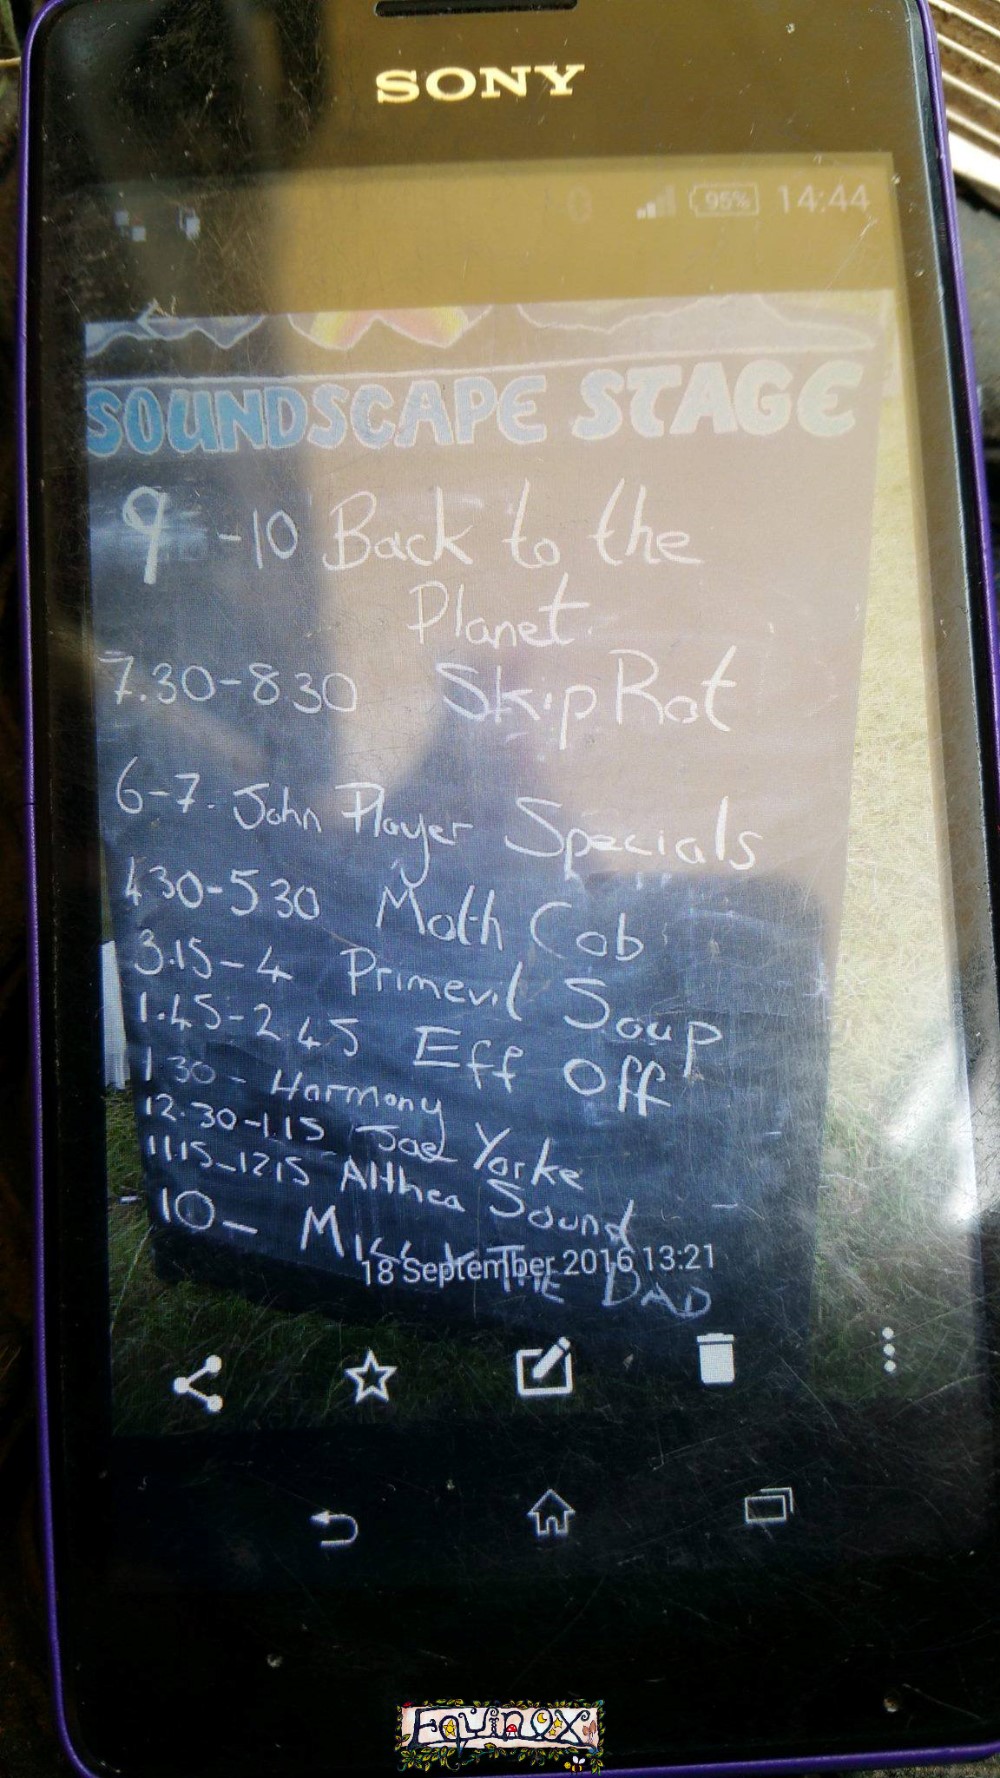 SONY
95% 14:44
SOUNDSCAPE STAGE
9 -10 Back to the
Planet.
7.30-830 Skip Rat
6-7. John Player Specials
430-530 Moth Cob
3.15-4 Primevil Soup
1.45-2.45 Eff Off
1 30- Harmony
12.30-1.15 Joel Yorke
11.15-12.15 Althea Sound
10- Miss
THE DAD
18 September 2016 13:21
EQUINOX